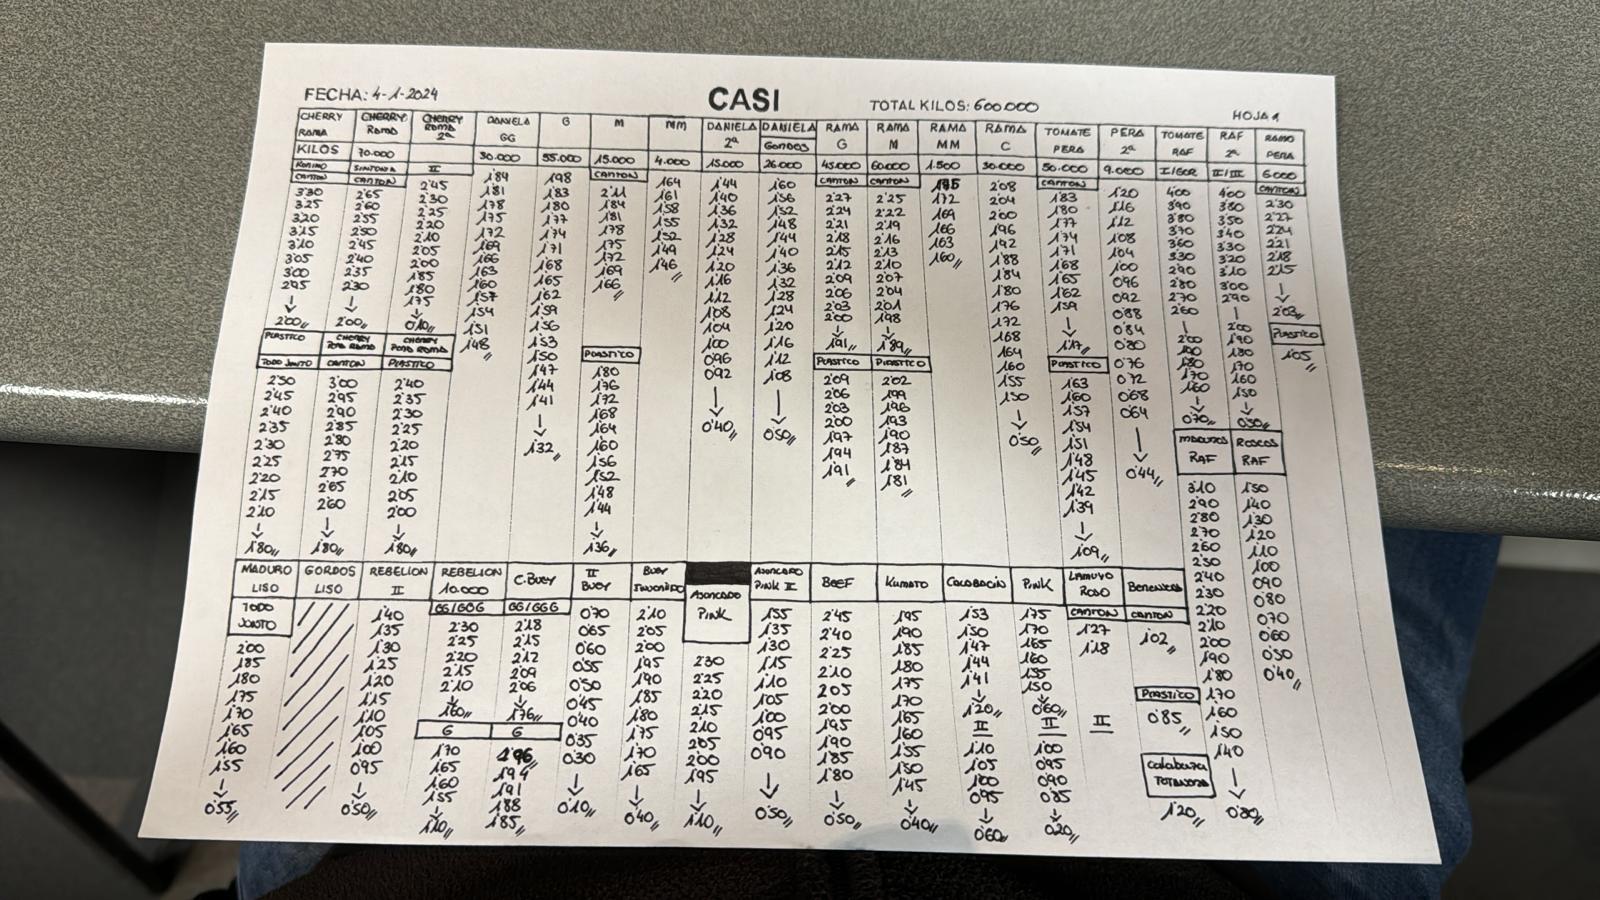 FECHA: 4-1-2024 CASI TOTAL KILOS: 600.000 HOJA 1
CHERRY RAMA CHERRY RAMA CHERRY RAMA 2ª DANIELA GG G M MM DANIELA 2ª DANIELA GORDOS RAMA G RAMA M RAMA MM RAMA C TOMATE PERA PERA 2ª TOMATE RAF RAF 2ª RAMO PERA
KILOS 70.000 30.000 55.000 15.000 4.000 15.000 26.000 45.000 60.000 1.500 30.000 50.000 9.000 I/SOR II/III 6.000
CANTON CANTON II CANTON CANTON CANTON CANTON CANTON
3'30 2'65 2'45 1'84 1'98 2'11 1'64 1'44 1'60 2'27 2'25 1'75 2'08 1'83 1'20 4'00 4'00 2'30
3'25 2'60 2'30 1'81 1'83 1'84 1'61 1'40 1'56 2'24 2'22 1'72 2'04 1'80 1'16 3'90 3'80 2'27
3'20 2'55 2'25 1'78 1'80 1'81 1'58 1'36 1'52 2'21 2'19 1'69 2'00 1'77 1'12 3'80 3'50 2'24
3'15 2'50 2'20 1'75 1'77 1'78 1'55 1'32 1'48 2'18 2'16 1'66 1'96 1'74 1'08 3'70 3'40 2'21
3'10 2'45 2'10 1'72 1'74 1'75 1'52 1'28 1'44 2'15 2'13 1'63 1'92 1'71 1'04 3'60 3'30 2'18
3'05 2'40 2'05 1'69 1'71 1'72 1'49 1'24 1'40 2'12 2'10 1'60 1'88 1'68 1'00 3'30 3'20 2'15
3'00 2'35 2'00 1'66 1'68 1'69 1'46 1'20 1'36 2'09 2'07 1'84 1'65 0'96 2'90 3'10 ↓
2'95 2'30 1'85 1'63 1'65 1'66 1'16 1'32 2'06 2'04 1'80 1'62 0'92 2'80 3'00 2'03
↓ ↓ 1'80 1'60 1'62 1'12 1'28 2'03 2'01 1'76 1'59 0'88 2'70 2'90
2'00 2'00 1'75 1'57 1'59 1'08 1'24 2'00 1'98 1'72 ↓ 0'84 2'60 ↓
↓ 1'54 1'56 1'04 1'20 ↓ ↓ 1'68 1'17 0'80 ↓ 2'00
0'10 1'51 1'53 1'00 1'16 1'91 1'89 1'64 0'76 2'00 1'90
1'48 1'50 0'96 1'12 1'60 0'72 1'90 1'80
1'47 0'92 1'08 1'55 0'68 1'80 1'70
1'44 ↓ ↓ 1'50 0'64 1'70 1'60
1'41 0'40 0'50 ↓ ↓ 1'60 1'50
↓ 0'50 0'44 ↓ ↓
1'32 0'70 0'50
PLASTICO CHERRY PERA RAMA CHERRY PERA RAMA PLASTICO PLASTICO PLASTICO PLASTICO PLASTICO
TODO JUNTO CANTON PLASTICO
2'50 3'00 2'40 1'80 2'09 2'02 1'63 1'05
2'45 2'95 2'35 1'76 2'06 1'99 1'60
2'40 2'90 2'30 1'72 2'03 1'96 1'57
2'35 2'85 2'25 1'68 2'00 1'93 1'54
2'30 2'80 2'20 1'64 1'97 1'90 1'51
2'25 2'75 2'15 1'60 1'94 1'87 1'48
2'20 2'70 2'10 1'56 1'91 1'84 1'45
2'15 2'65 2'05 1'52 1'81 1'42
2'10 2'60 2'00 1'48 1'39
↓ ↓ ↓ 1'44 ↓
1'80 1'80 1'80 ↓ 1'09
1'36
MADUROS RAF ROSCOS RAF
3'10 1'50
2'90 1'40
2'80 1'30
2'70 1'20
2'60 1'10
2'50 1'00
2'40 0'90
2'30 0'80
2'20 0'70
2'10 0'60
2'00 0'50
1'90 0'40
1'80
1'70
1'60
1'50
1'40
↓
0'80
MADURO LISO GORDOS LISO REBELION II REBELION 10.000 C.BUEY II BUEY BUEY ASONCADO PINK ASONCADO PINK II BEEF KUMATO CALABACIN PINK LAMUYO ROJO BERENJENA
TODO JUNTO GG/GGG GG/GGG CANTON CANTON
2'00 1'40 2'30 2'18 0'70 2'10 2'30 1'55 2'45 1'95 1'53 1'75 1'27 1'02
1'85 1'35 2'25 2'15 0'65 2'05 2'25 1'35 2'40 1'90 1'50 1'70 1'18
1'80 1'30 2'20 2'12 0'60 2'00 2'20 1'30 2'25 1'85 1'47 1'65
1'75 1'25 2'15 2'09 0'55 1'95 2'15 1'15 2'10 1'80 1'44 1'60
1'70 1'20 2'10 2'06 0'50 1'90 2'10 1'10 2'05 1'75 1'41 1'55
1'65 1'15 ↓ ↓ 0'45 1'85 2'05 1'05 2'00 1'70 ↓ 1'50
1'60 1'10 1'60 1'76 0'40 1'80 2'00 1'00 1'95 1'65 1'20 ↓
1'55 1'05 G G 0'35 1'75 1'95 0'95 1'90 1'60 II 0'60
↓ 1'00 1'70 1'96 0'30 1'70 ↓ 0'90 1'85 1'55 1'10 II II
0'55 0'95 1'65 1'94 ↓ 1'65 1'10 ↓ 1'80 1'50 1'05 1'00
↓ 1'60 1'91 0'10 ↓ 0'50 ↓ 1'45 1'00 0'95
0'50 1'55 1'88 0'40 0'50 ↓ 0'95 0'90
↓ ↓ 0'40 ↓ 0'85
1'10 1'85 0'60 ↓
0'20
PLASTICO
0'85
CALABAZA
1'20